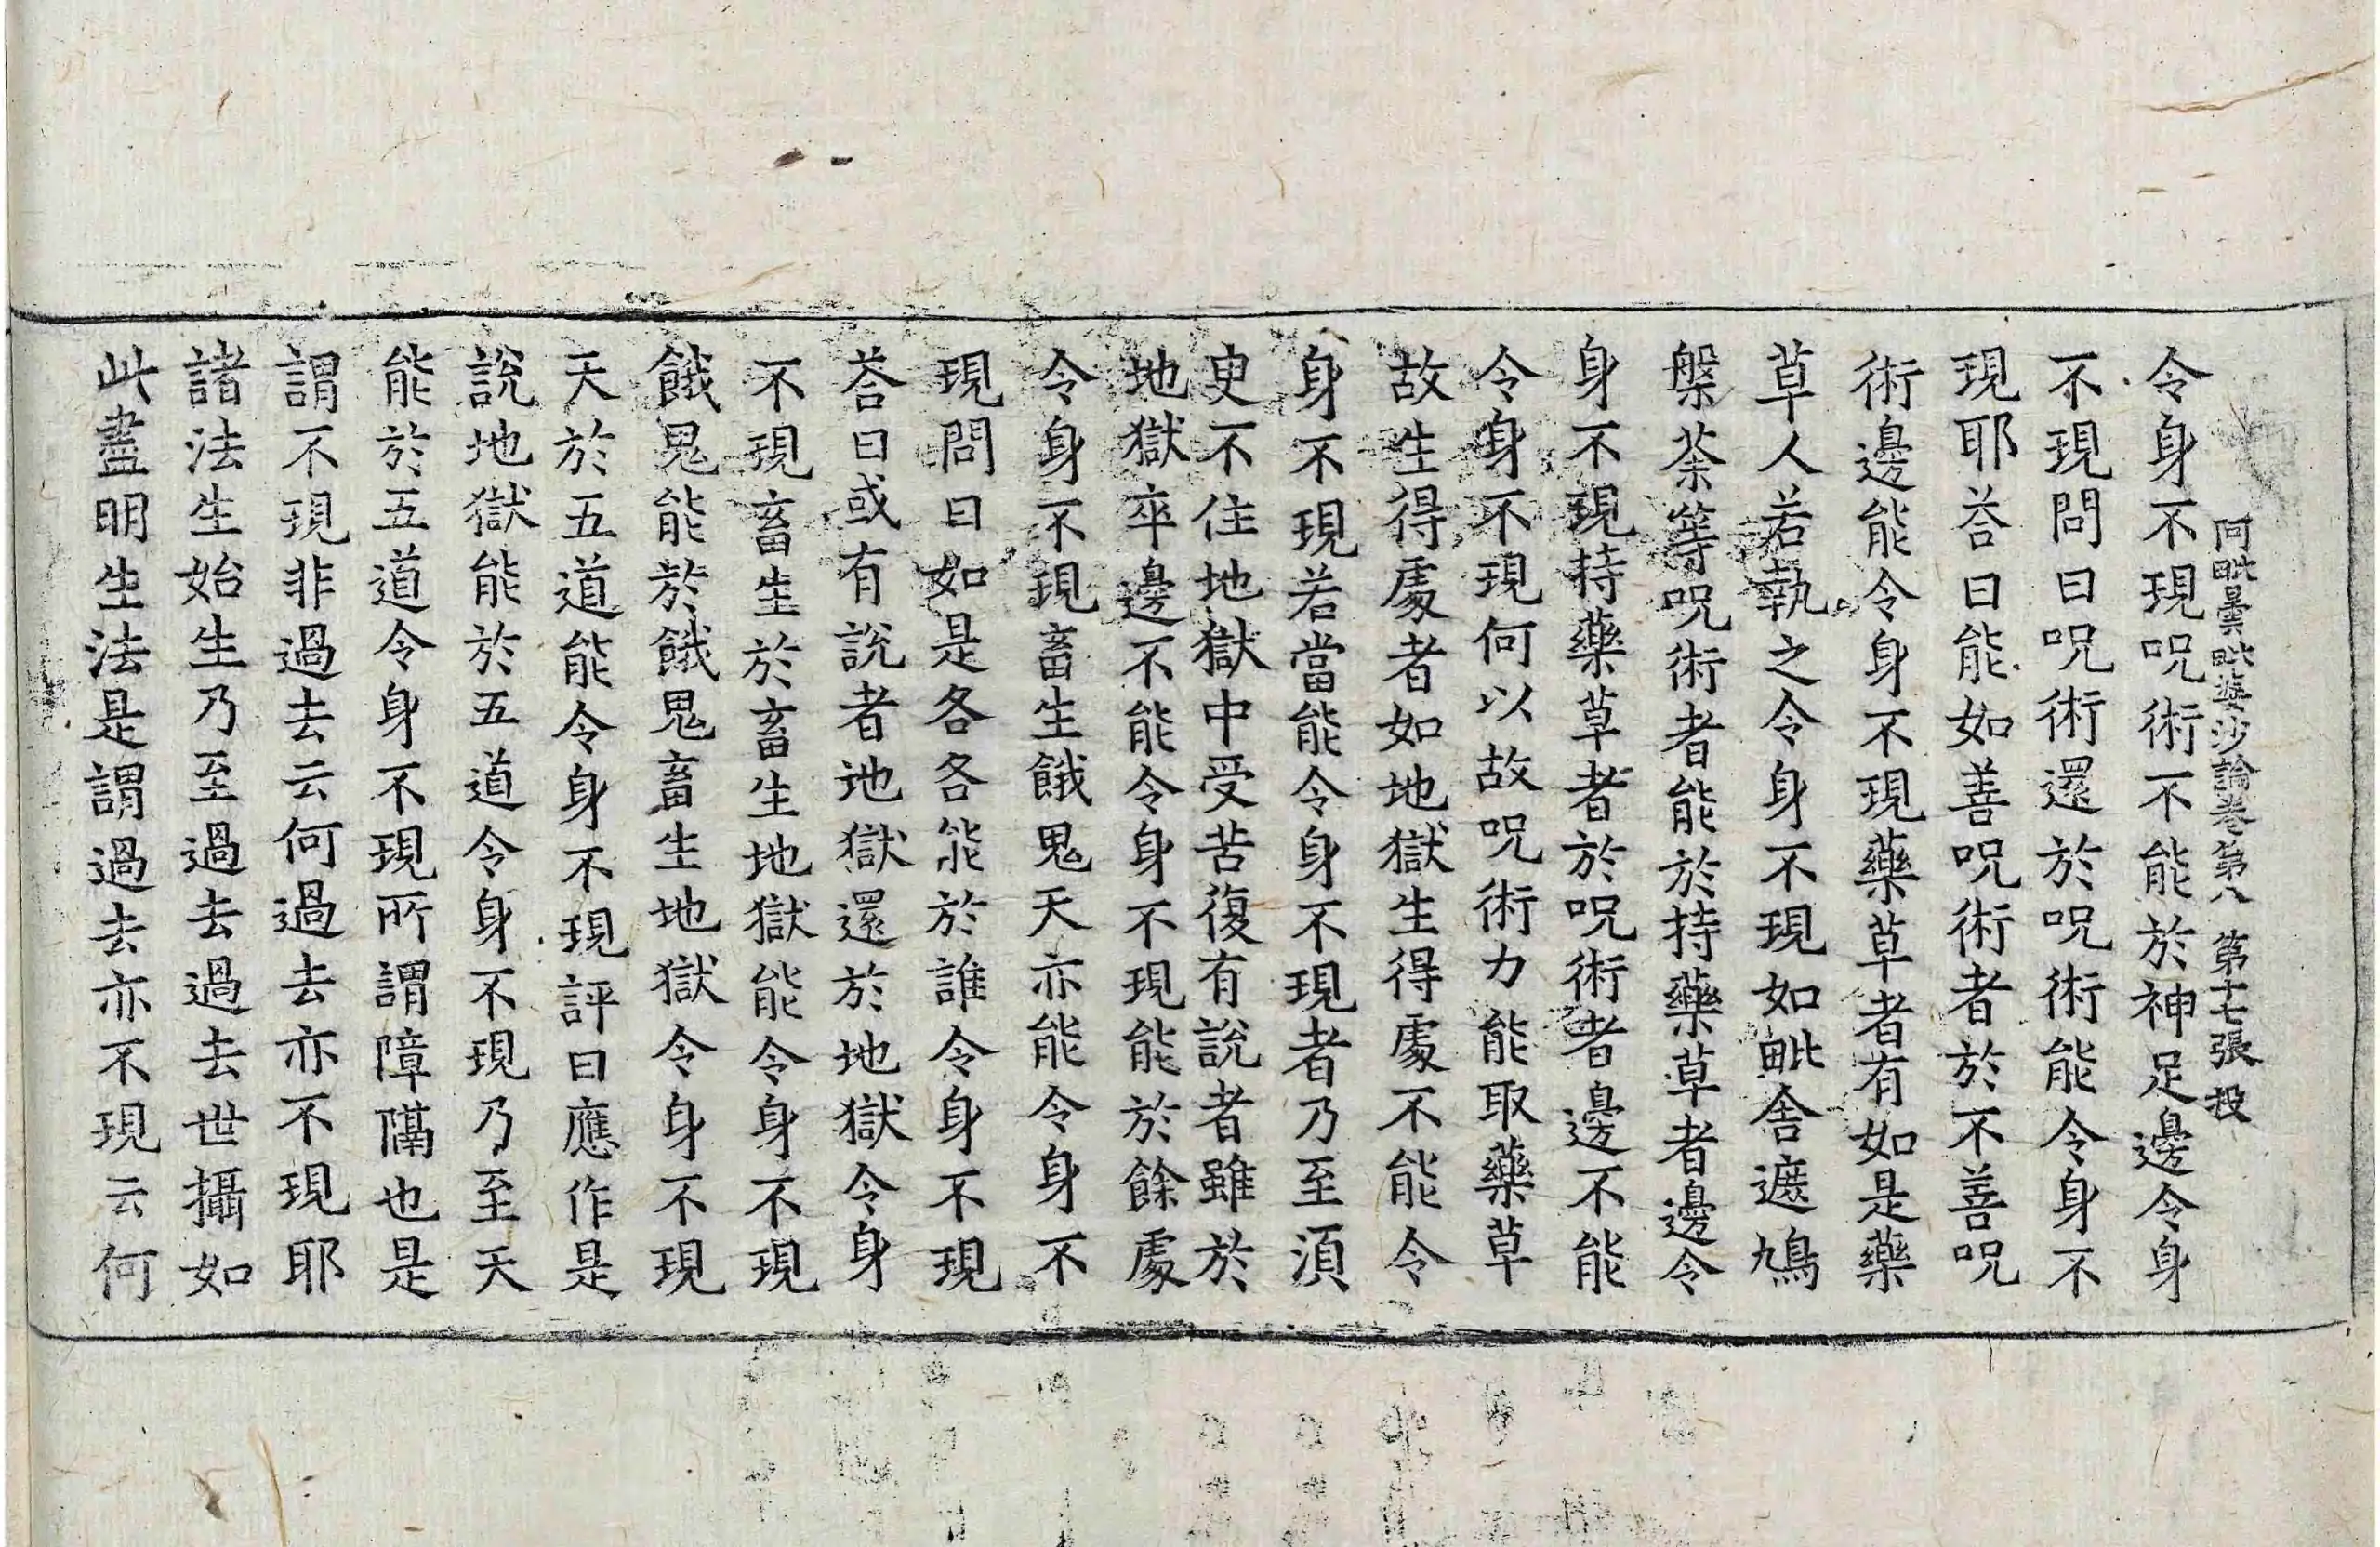 阿毗曇毗婆沙論卷第八　第十七張　投
令身不現呪術不能於神足邊令身
不現問曰呪術還於呪術能令身不
現耶荅曰能如善呪術者於不善呪
術邊能令身不現藥草者有如是藥
草人若執之令身不現如毗舍遮鳩
槃荼等呪術者能於持藥草者邊令
身不現持藥草者於呪術者邊不能
令身不現何以故呪術力能取藥草
故生得處者如地獄生得處不能令
身不現若當能令身不現者乃至湏
臾不住地獄中受苦復有說者雖於
地獄卒邊不能令身不現能於餘處
令身不現畜生餓鬼天亦能令身不
現問曰如是各各能於誰令身不現
荅曰或有說者地獄還於地獄令身
不現畜生於畜生地獄能令身不現
餓鬼能於餓鬼畜生地獄令身不現
天於五道能令身不現評曰應作是
說地獄能於五道令身不現乃至天
能於五道令身不現所謂障隔也是
謂不現非過去云何過去亦不現耶
諸法生始生乃至過去過去世攝如
此盡明生法是謂過去亦不現云何